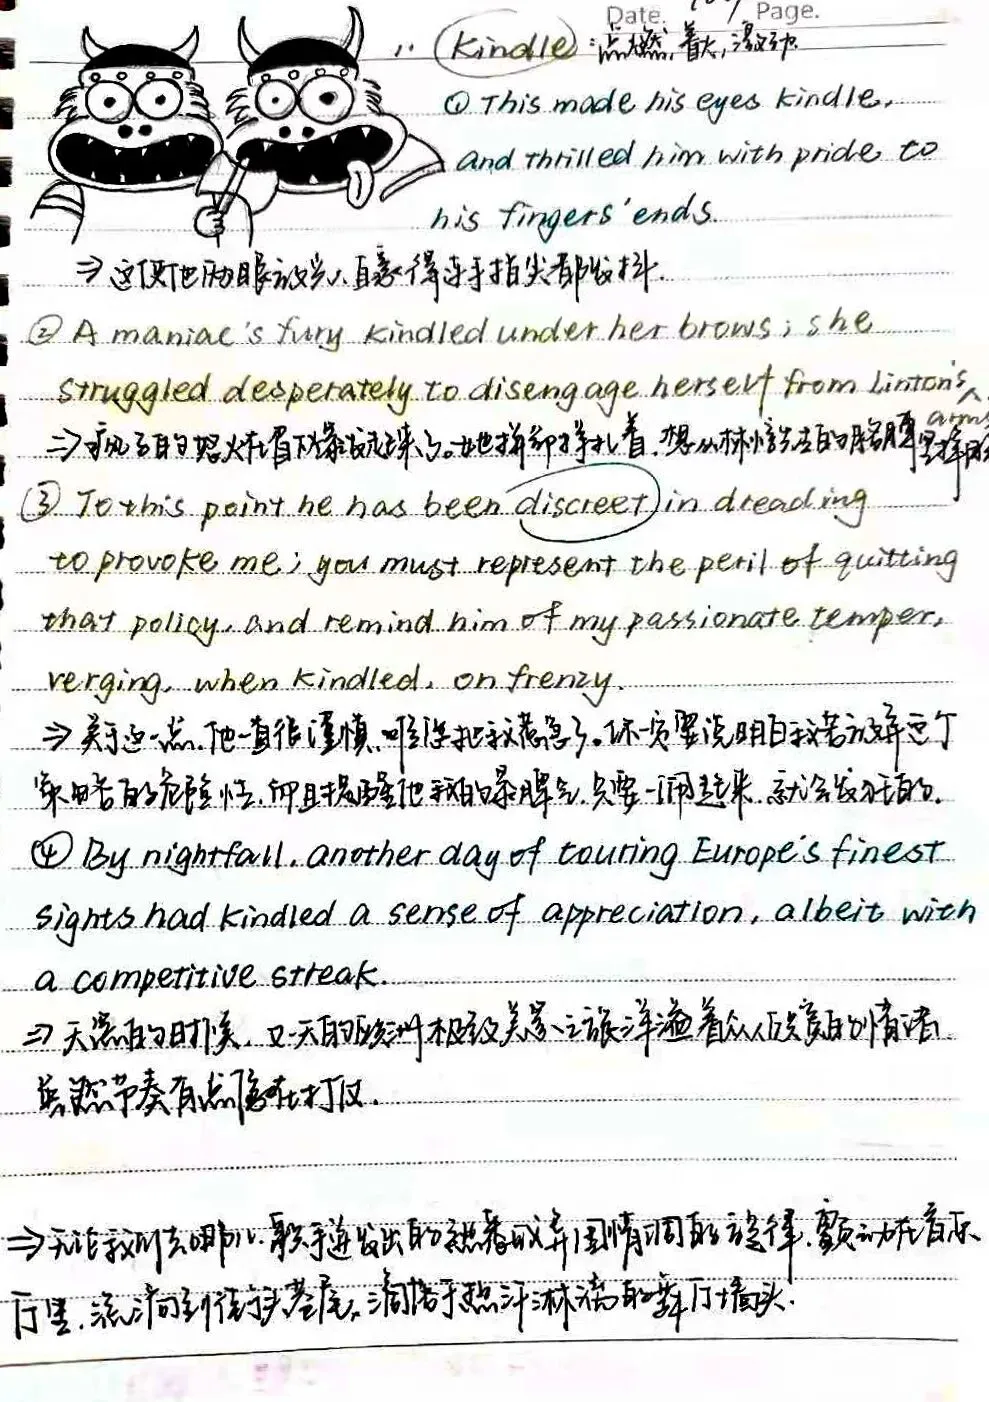 Date. Page.
1. Kindle: 点燃,着火,激动
① This made his eyes kindle,
and thrilled him with pride to
his fingers' ends.
⇒ 这使他两眼放光、自豪得连手指尖都发抖.
② A maniac's fury kindled under her brows; she
struggled desperately to disengage herself from Linton's
arms
⇒ 疯子的怒火在眉下燃起来了。她拼命挣扎着,想从林惇先生的胳膊里挣脱
③ To this point he has been discreet in dreading
to provoke me; you must represent the peril of quitting
that policy, and remind him of my passionate temper,
verging, when kindled, on frenzy.
⇒ 关于这一点,他一直很谨慎,唯恐把我惹急了。你一定要说明白我若放弃这个
策略的危险性,而且提醒他我的暴脾气,只要一闹起来,就会发狂的.
④ By nightfall, another day of touring Europe's finest
sights had kindled a sense of appreciation, albeit with
a competitive streak.
⇒ 天黑的时候,又一天的欧洲极致美景之旅洋溢着众人欣赏的情绪
虽然节奏有点像在打仗.
⇒ 无论我们去哪儿,歌手迸发出的旋律,颤动在音乐
厅里,流淌到街头巷尾,滴落于热汗淋漓的舞厅墙头.